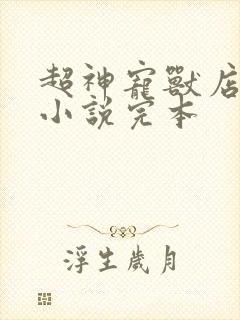 超神寵獸店
小說完本
浮生歲月